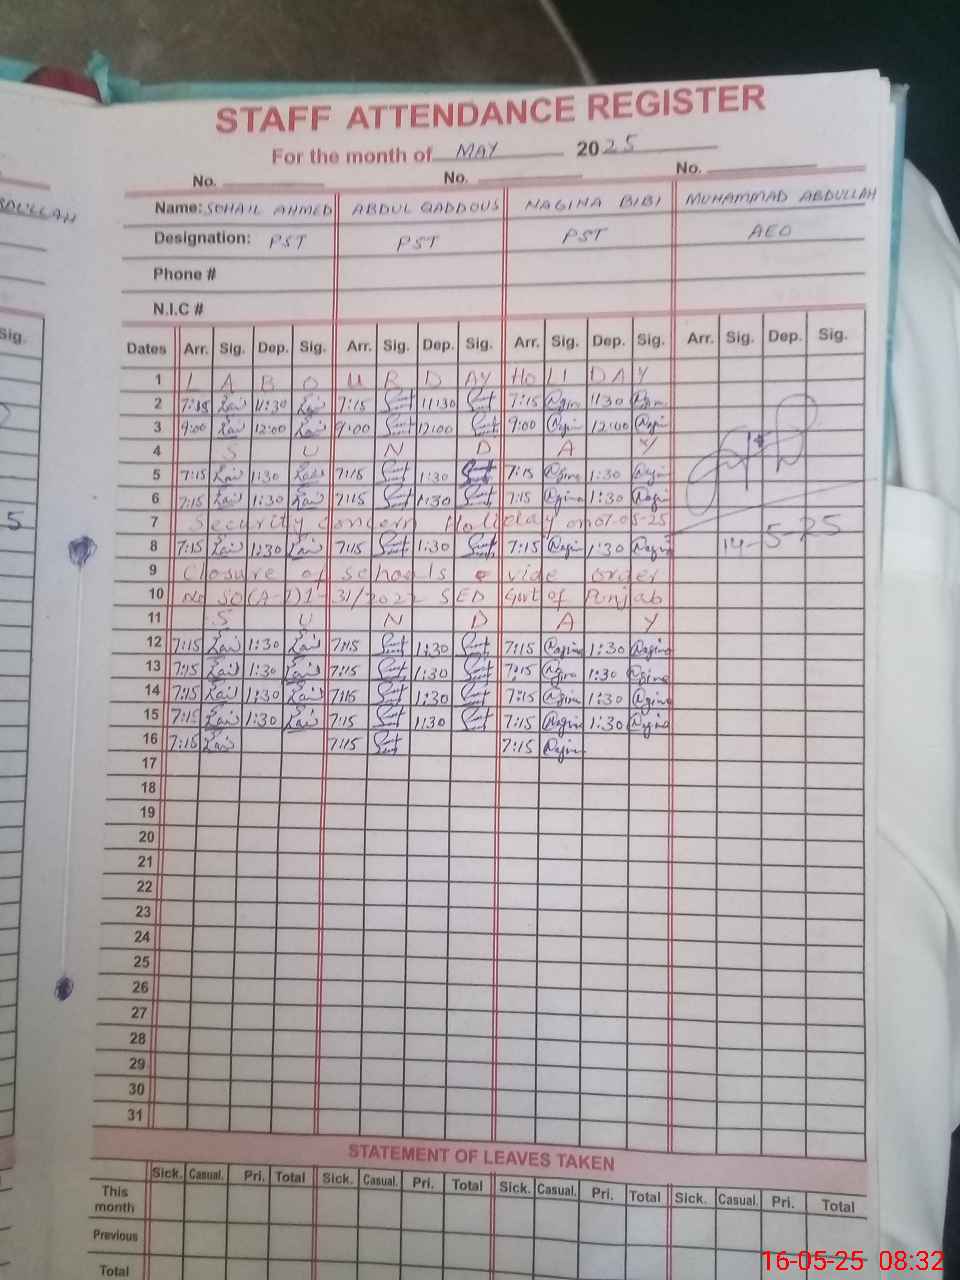 STAFF ATTENDANCE REGISTER
For the month of MAY 2025
No. No. No.
Name: SOHAIL AHMED ABDUL QADDOUS NAGINA BIBI MUHAMMAD ABDULLAH
Designation: PST PST PST AEO
Phone #
N.I.C #
Dates Arr. Sig. Dep. Sig. Arr. Sig. Dep. Sig. Arr. Sig. Dep. Sig. Arr. Sig. Dep. Sig.
1 L A B O U R D AY HO LI DAY
2 7:15 11:30 7:15 11:30 7:15 11:30
3 9:00 12:00 9:00 12:00 9:00 12:00
4 S U N D A Y
5 7:15 1:30 7:15 1:30 7:15 1:30
6 7:15 1:30 7:15 1:30 7:15 1:30
7 Security Concern Holiday on 07-05-25
8 7:15 1:30 7:15 1:30 7:15 1:30 14-5-25
9 Closure of schools vide order
10 No SO(A-I)1-31/2022 SED Govt of Punjab
11 S U N D A Y
12 7:15 1:30 7:15 1:30 7:15 1:30
13 7:15 1:30 7:15 1:30 7:15 1:30
14 7:15 1:30 7:15 1:30 7:15 1:30
15 7:15 1:30 7:15 1:30 7:15 1:30
16 7:15 7:15 7:15
17
18
19
20
21
22
23
24
25
26
27
28
29
30
31
STATEMENT OF LEAVES TAKEN
Sick. Casual. Pri. Total Sick. Casual. Pri. Total Sick. Casual. Pri. Total Sick. Casual. Pri. Total
This month
Previous
Total
16-05-25 08:32